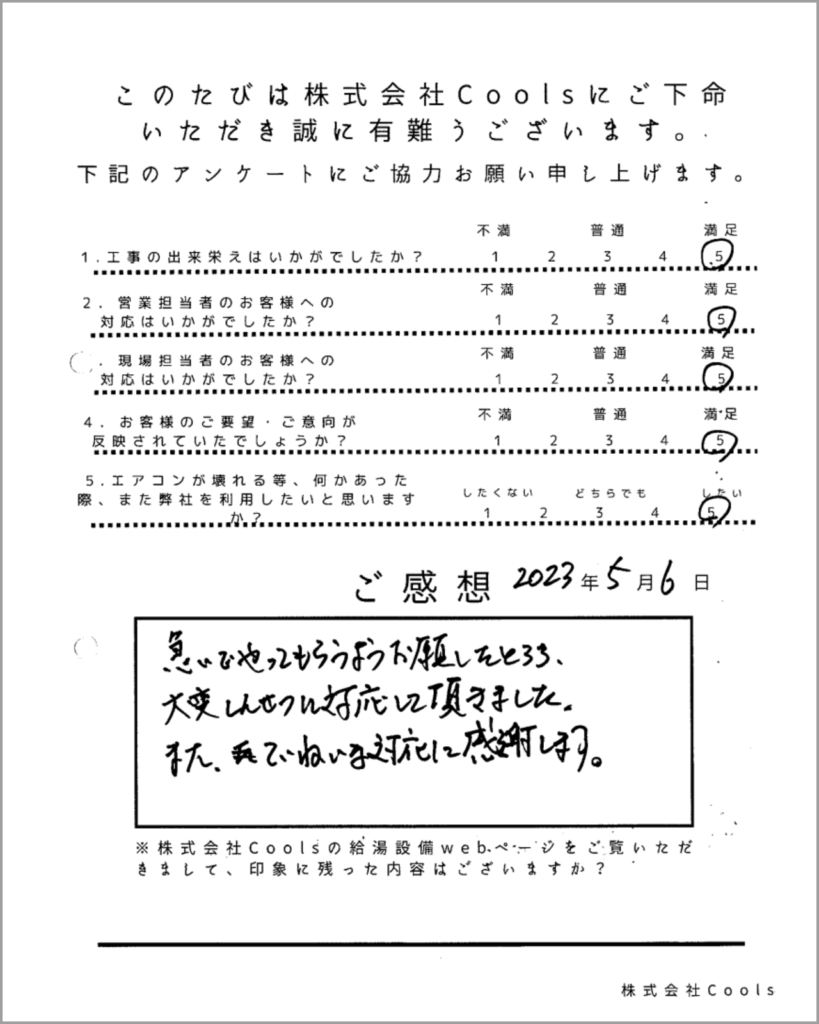 このたびは株式会社Coolsにご下命
いただき誠に有難うございます。
下記のアンケートにご協力お願い申し上げます。
不満 普通 満足
1.工事の出来栄えはいかがでしたか? 1 2 3 4 5
不満 普通 満足
2.営業担当者のお客様への
対応はいかがでしたか? 1 2 3 4 5
不満 普通 満足
.現場担当者のお客様への
対応はいかがでしたか? 1 2 3 4 5
不満 普通 満足
4.お客様のご要望・ご意向が
反映されていたでしょうか? 1 2 3 4 5
5.エアコンが壊れる等、何かあった
際、また弊社を利用したいと思います
したくない どちらでも したい
か? 1 2 3 4 5
ご感想 2023年5月6日
急いでやってもらうようお願いしたところ、
大変しんせつに対応して頂きました。
また、ていねいな対応に感謝します。
※株式会社Coolsの給湯設備webページをご覧いただ
きまして、印象に残った内容はございますか?
株式会社Cools